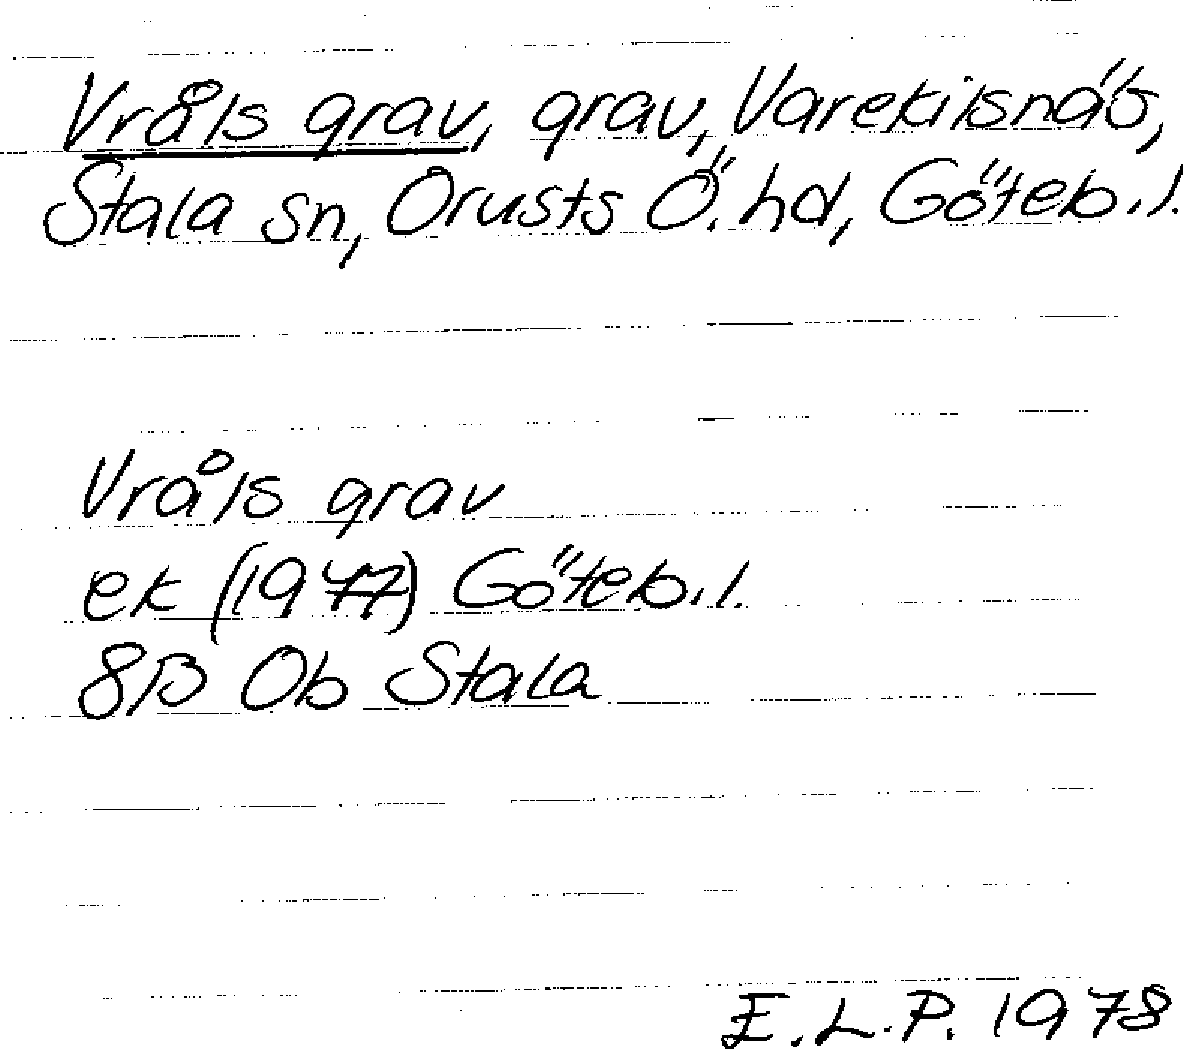 Vråls grav, grav, Varekilsnäs,
Stala sn, Orusts Ö. hd, Göteb. l.
Vråls grav
ek (1977) Göteb. l.
8B Ob Stala
E. L. P. 1978